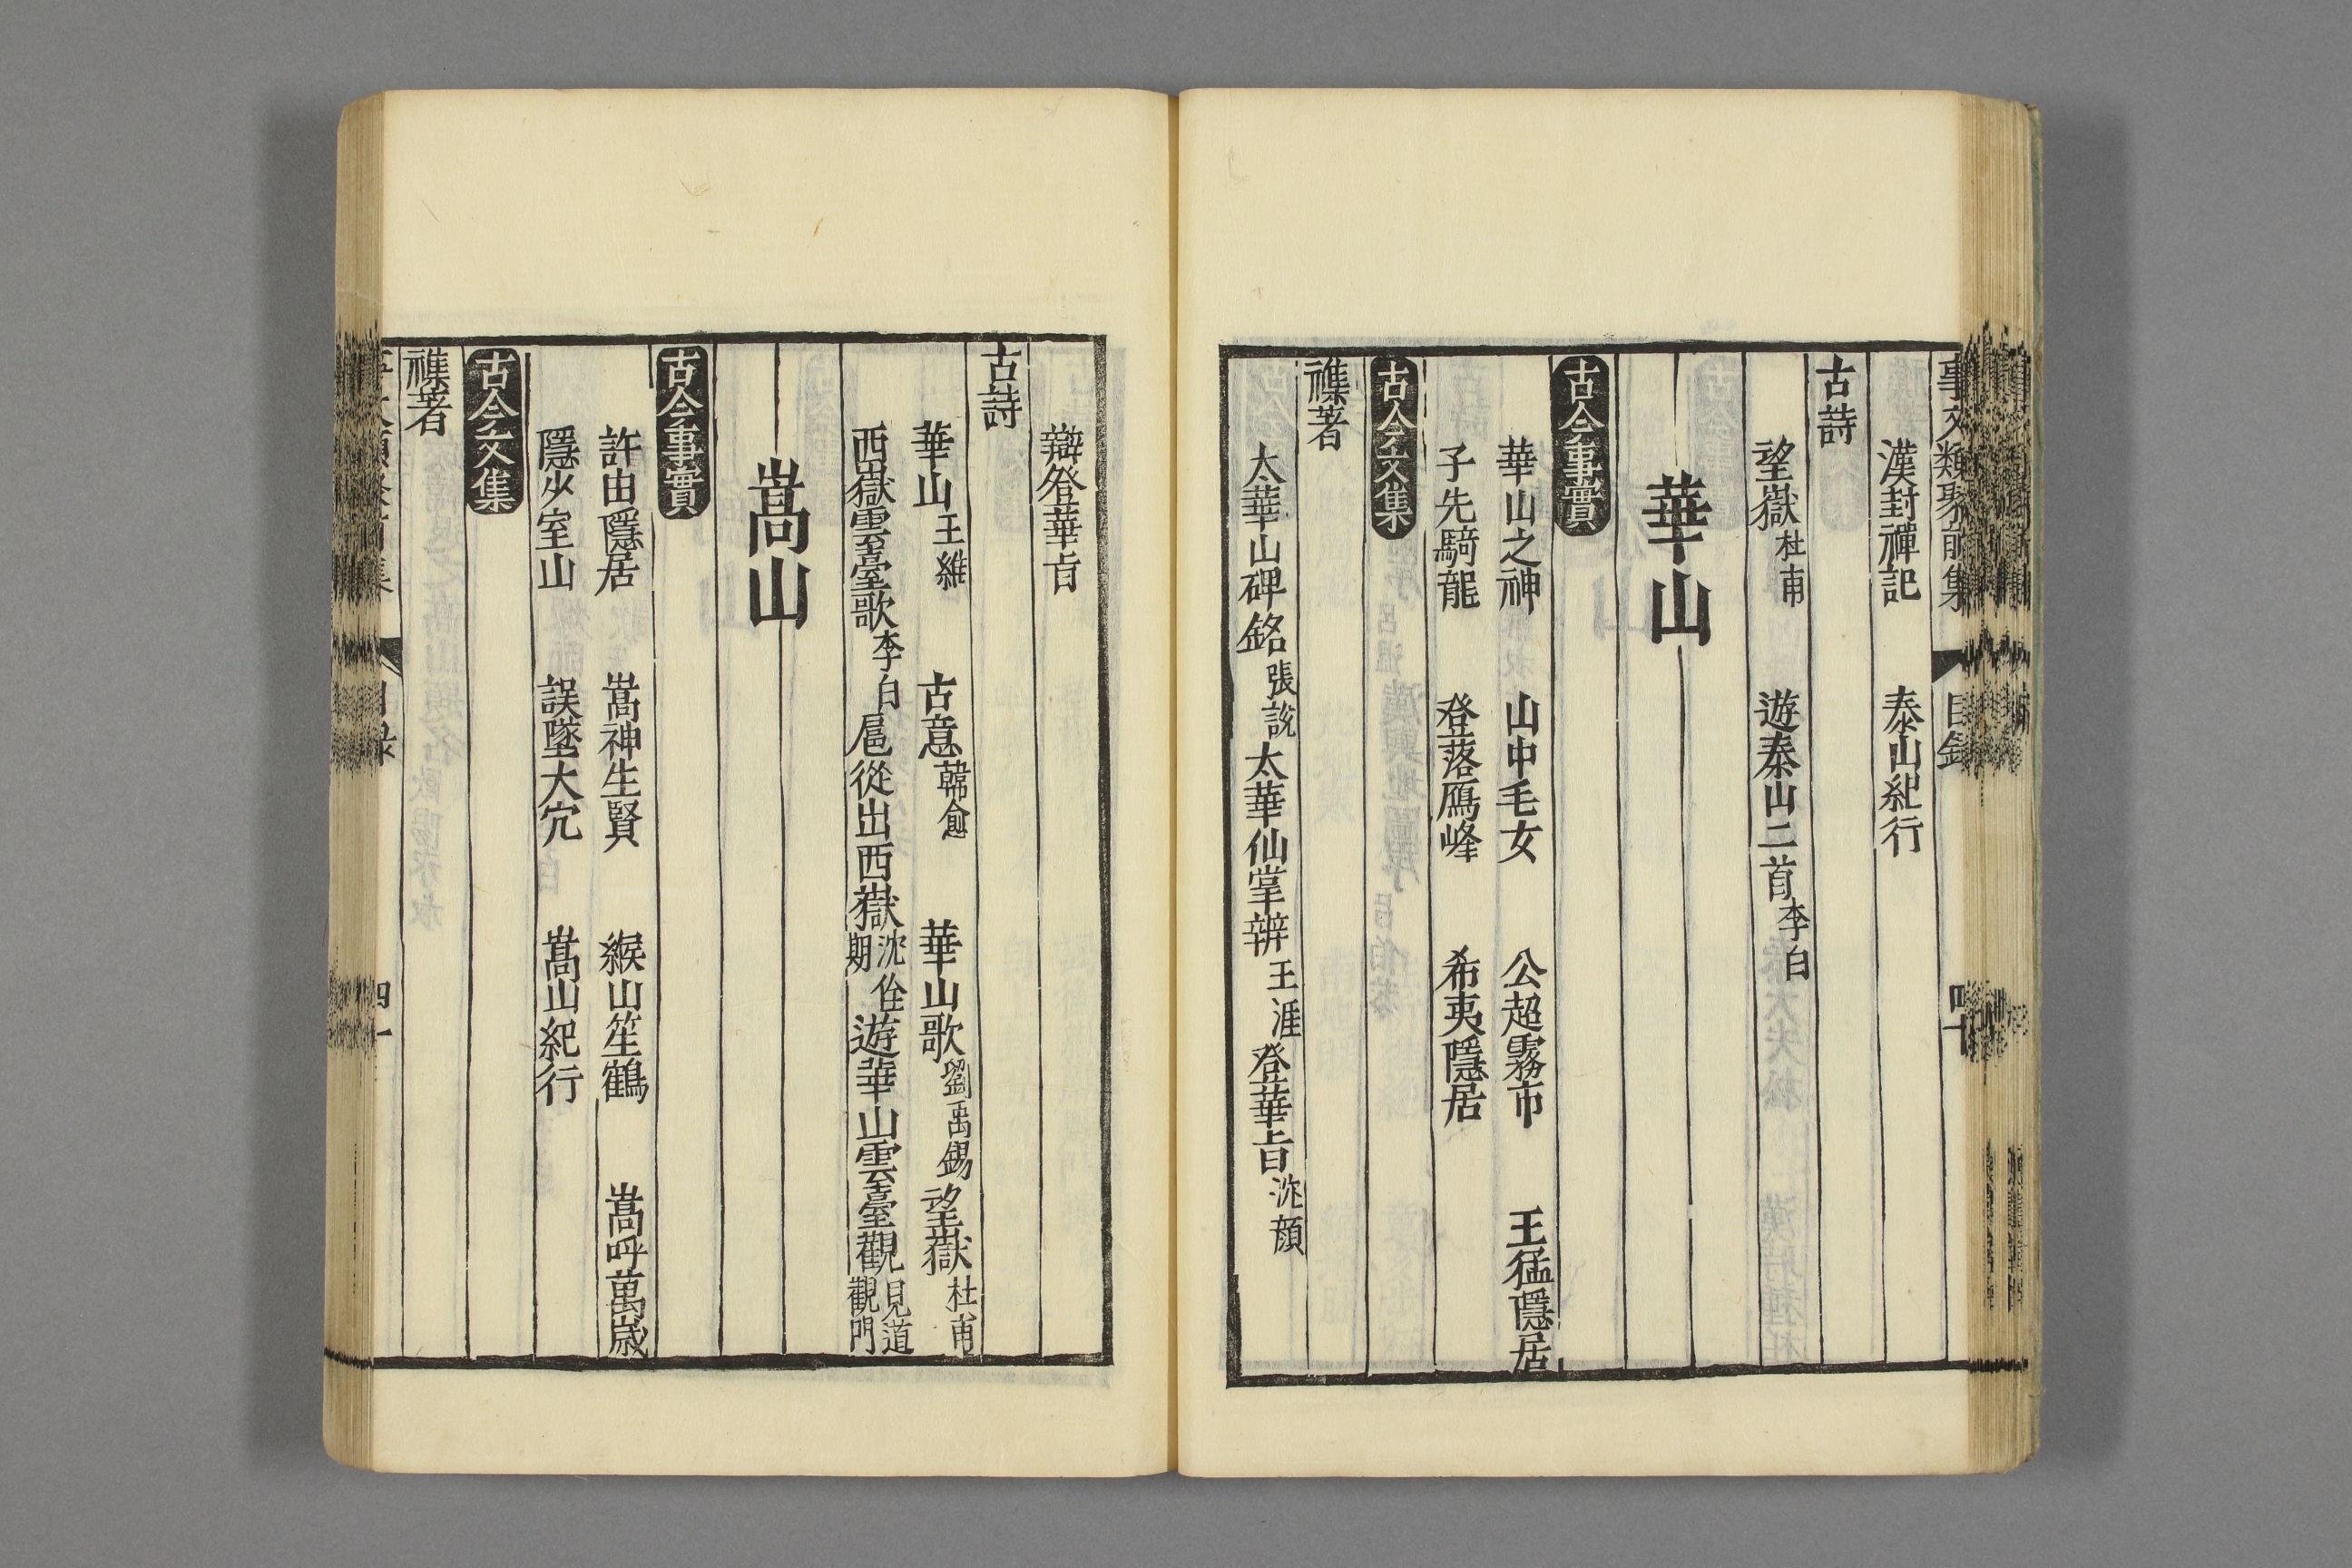 事文類聚前集 目録 四十
漢封禪記 泰山紀行
古詩
望嶽杜甫 遊泰山二首李白
華山
古今事實
華山之神 山中毛女 公超霧市 王猛隱居
子先騎龍 登落鴈峰 希夷隱居
古今文集
襍著
太華山碑銘張説太華仙掌辨王涯登華旨沈顔
辯登華旨
古詩
華山王維 古意韓愈 華山歌劉禹錫望嶽杜甫
西嶽雲臺歌李白扈從出西嶽沈佺期遊華山雲臺觀見道觀門
嵩山
古今事實
許由隱居 嵩神生賢 緱山笙鶴 嵩呼萬歲
隱少室山 誤墜大穴 嵩山紀行
古今文集
襍著